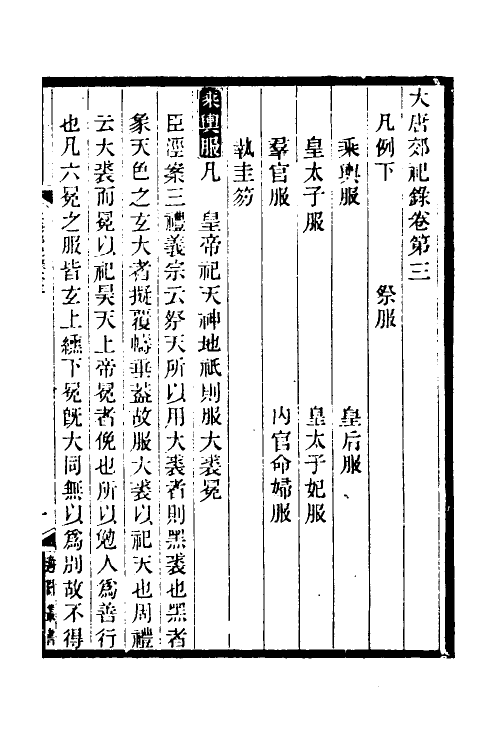 大唐郊祀錄卷第三
凡例下　祭服
乘輿服　皇后服
皇太子服　皇太子妃服
羣官服　內官命婦服
執圭笏
乘輿服凡　皇帝祀天神地祇則服大裘冕
臣涇案三禮義宗云祭天所以用大裘者則黑裘也黑者
象天色之玄大者擬覆幬垂蓋故服大裘以祀天也周禮
云大裘而冕以祀昊天上帝冕者俛也所以勉人爲善行
也凡六冕之服皆玄上纁下冕旣大同無以爲別故不得